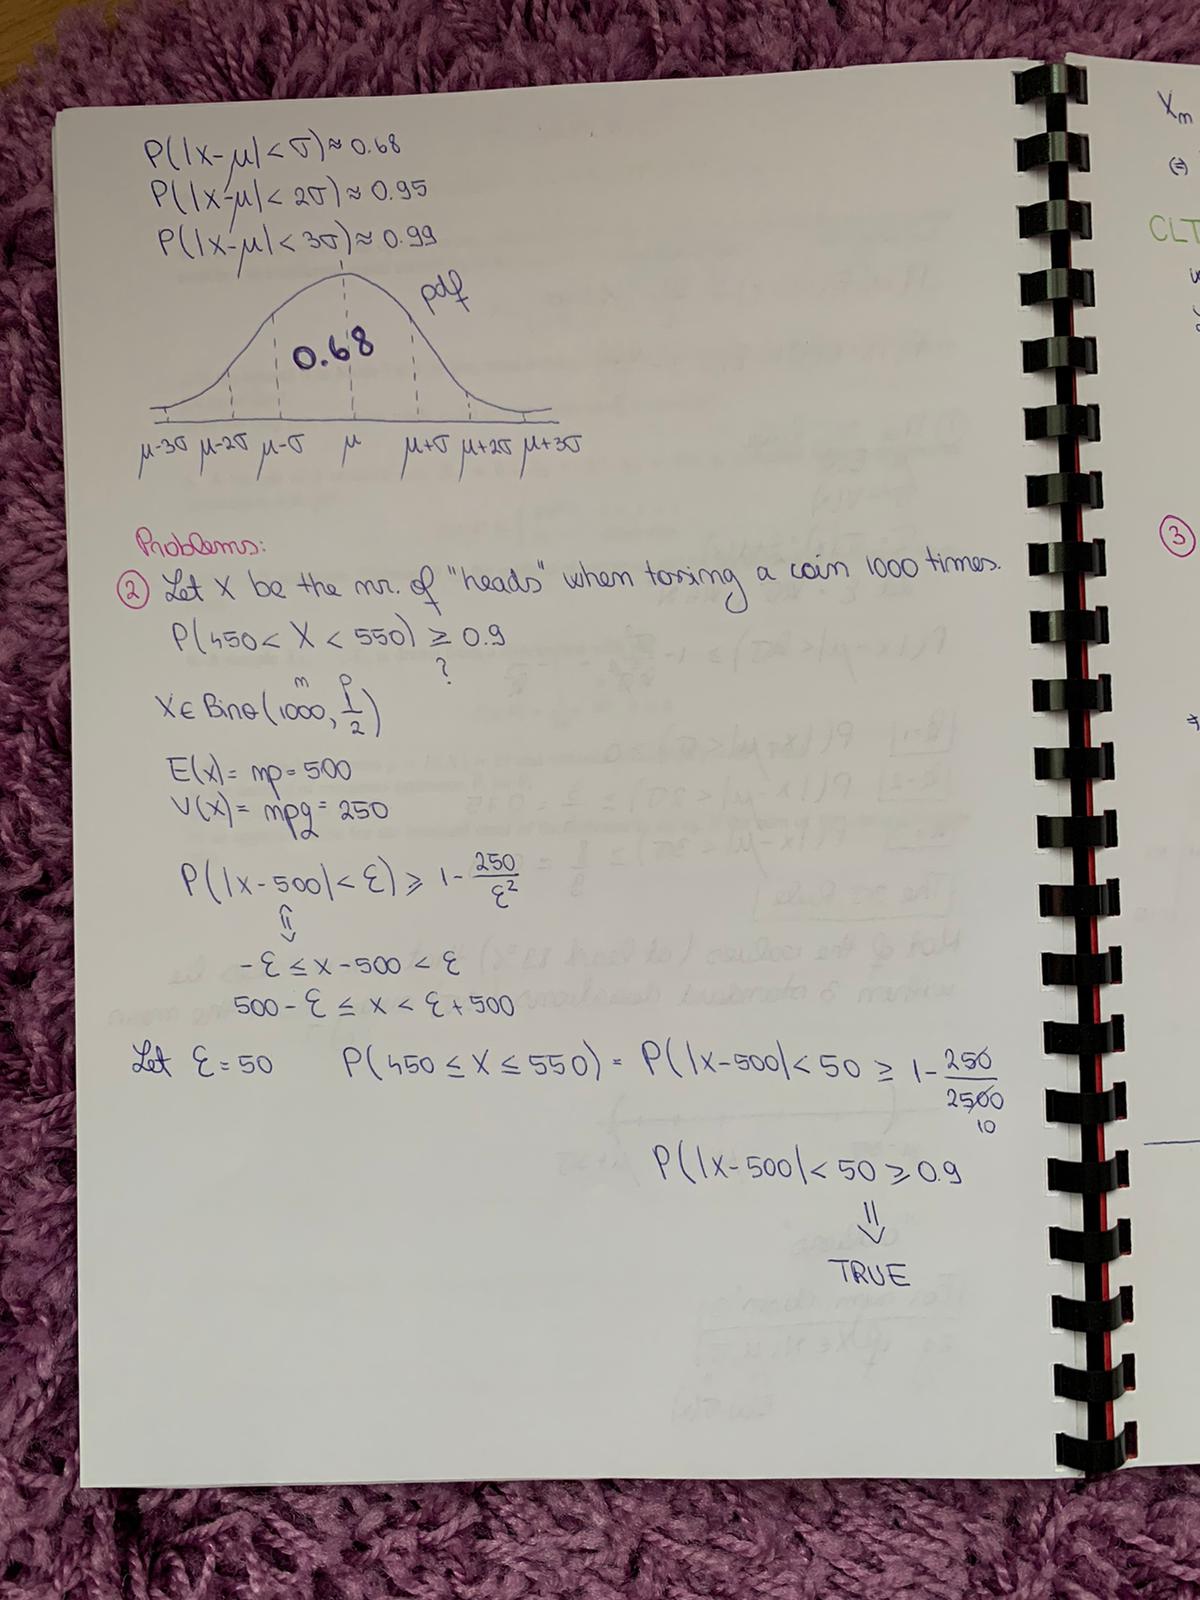 P(|x-μ|< σ)≈0.68
P(|x-μ|< 2σ)≈ 0.95
P(|x-μ|< 3σ)≈ 0.99
pdf
0.68
μ-3σ μ-2σ μ-σ μ μ+σ μ+2σ μ+3σ
Problems:
② Let X be the nr. of "heads" when tossing a coin 1000 times.
P(450< X < 550) ≥ 0.9
?
n p
X∈ Bino(1000, 1/2)
E(x)= np= 500
V(x)= npq= 250
P(|x-500|< ε) ≥ 1- 250/ε²
⇕
-ε ≤ x-500 < ε
500-ε ≤ x < ε+500
Let ε=50 P(450 ≤ X ≤ 550) = P(|x-500|< 50 ≥ 1- 250/2500
10
P(|x-500|< 50 ≥ 0.9
⇓
TRUE
Xm
(=)
CLT
③